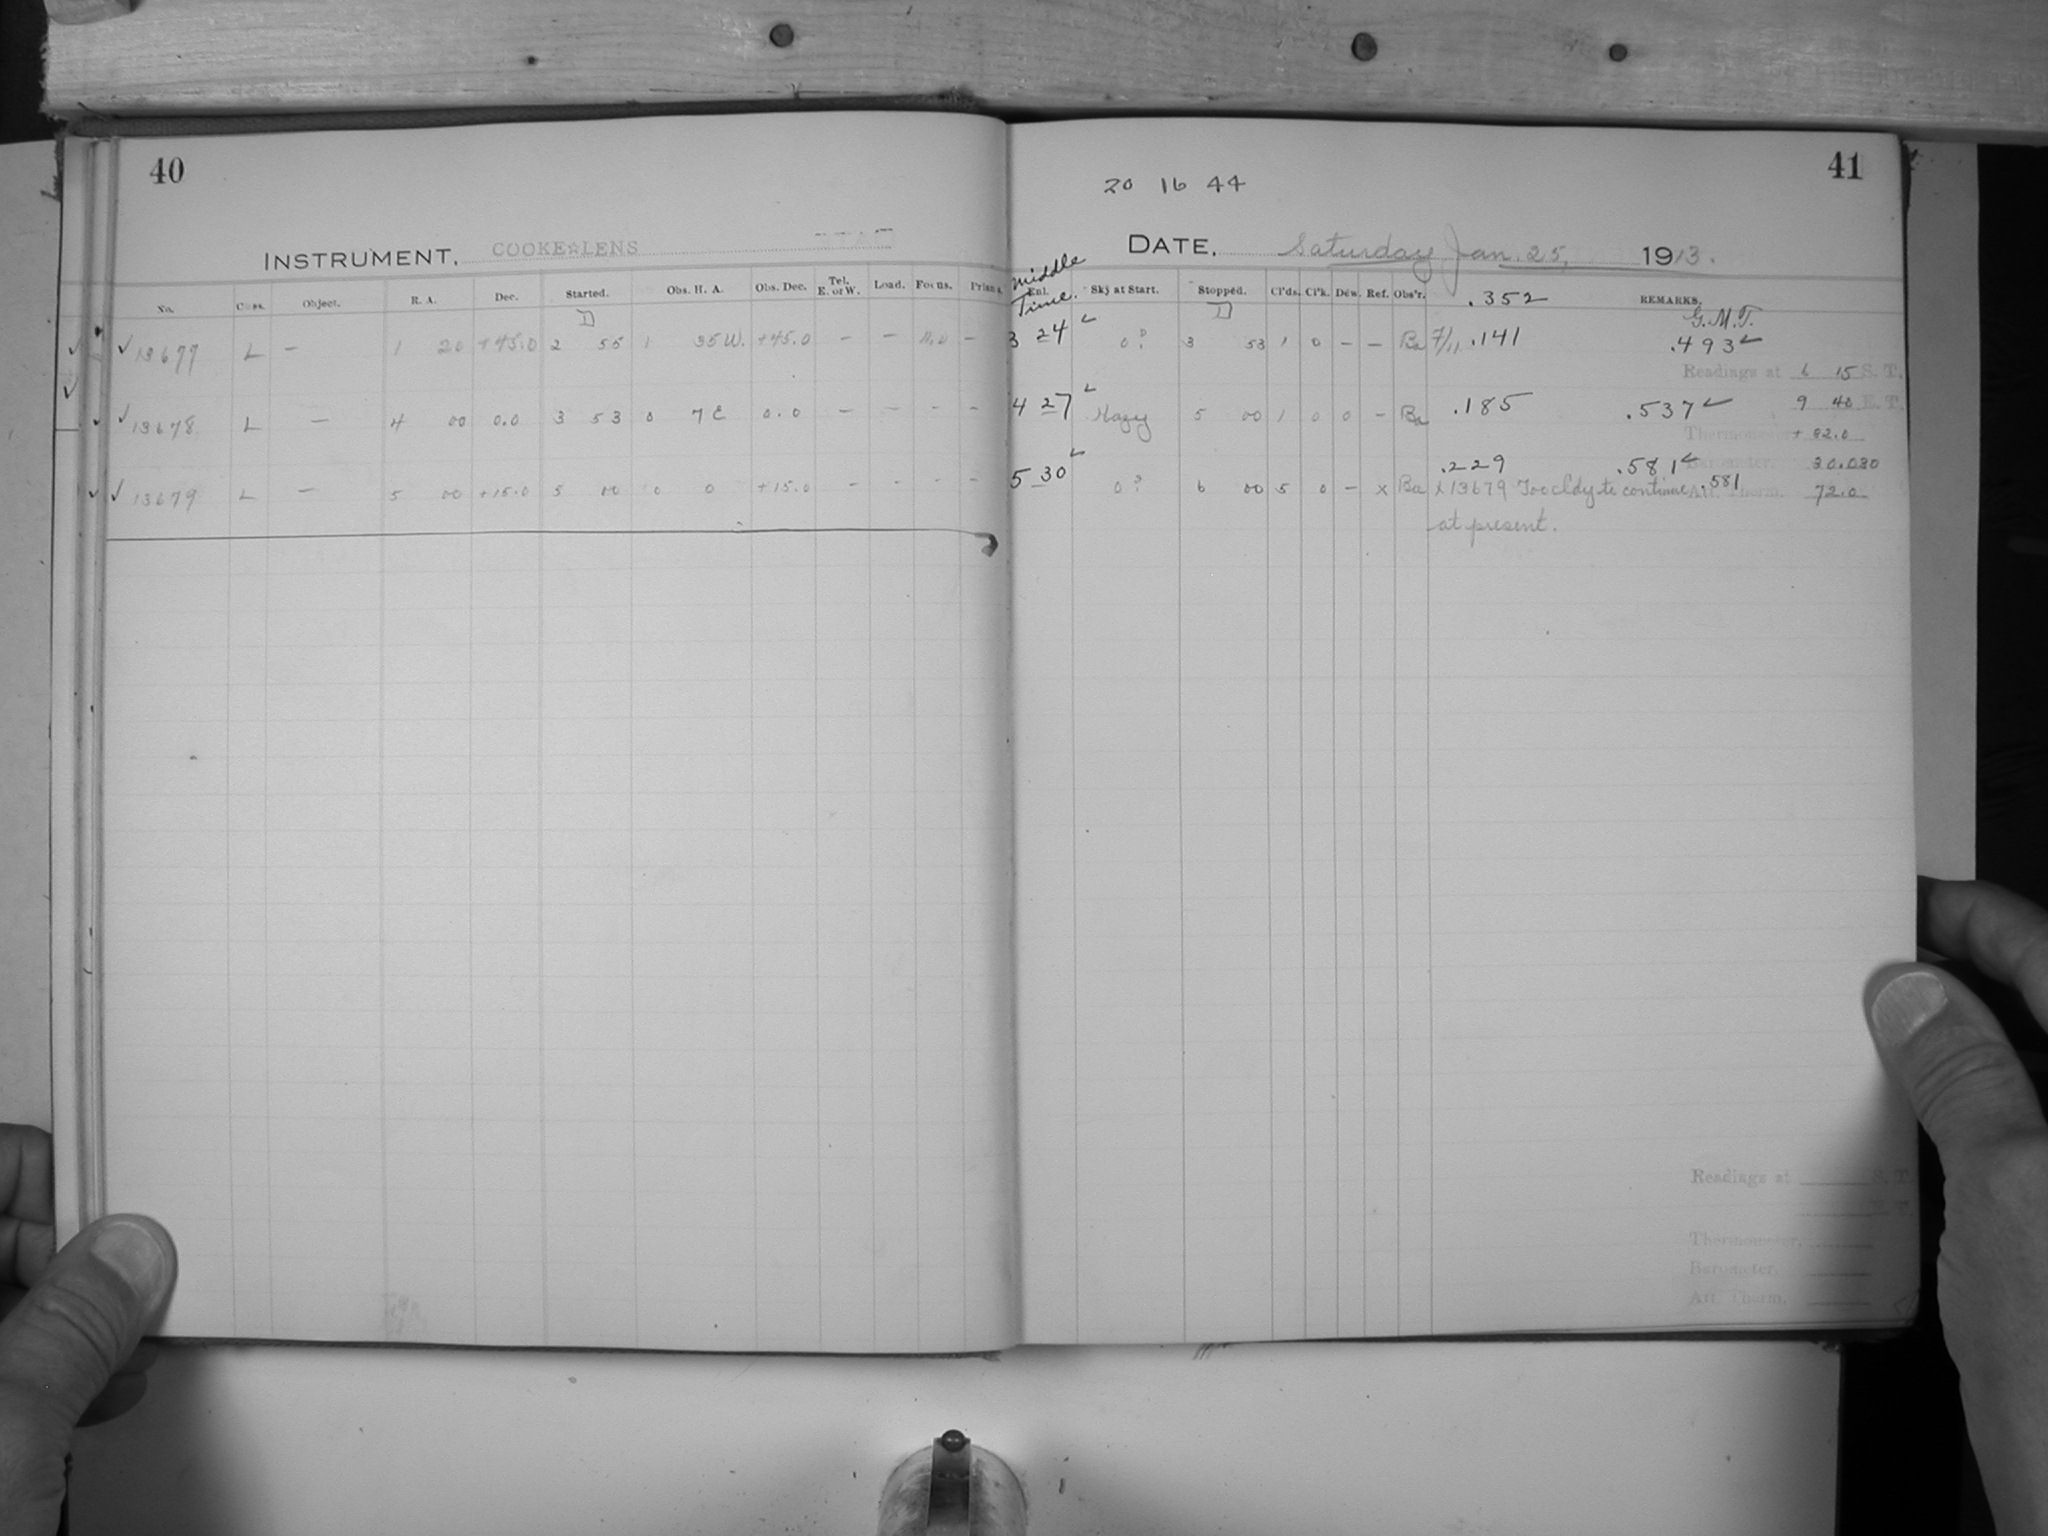 40
INSTRUMENT. COOKE☆LENS
No. Class. Object. R. A. Dec. Started. Obs. H. A. Obs. Dec. Tel. E. or W. Load. Focus. Prisms.
✓ 13677 L — 1 20 +45.0 2 55 1 35 W. +45.0 — — —
✓ 13678 L — 4 00 0.0 3 53 0 7 E 0.0 — - - -
✓ 13679 L — 5 00 +15.0 5 00 0 0 +15.0 - - - -
41
20 16 44
DATE. Saturday Jan. 25, 1913.
Middle Time. Enl. Sky at Start. Stopped. Cl'ds. Cl'k. Dew. Ref. Obs'r. .352 REMARKS.
G.M.T.
3 24 ✓ 0? 3 53 1 0 — — Ba 7/11 .141 .493 ✓
Readings at 6 15 S. T.
9 40 E. T.
4 27 ✓ Hazy 5 00 1 0 0 - Ba .185 .537 ✓
Thermometer + 32.0
.229 .581 ✓ Barometer. 30.030
5 30 ✓ 0? 6 00 5 0 — x Ba x 13679 Too cldy to continue .581 Att. Therm. 72.0
at present.
Readings at S. T.
E. T.
Thermometer.
Barometer.
Att. Therm.